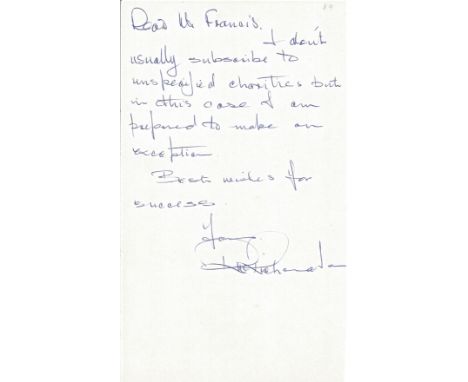 Dear Mr Francis.
I don't
usually subscribe to
unspecified charities but
in this case I am
prepared to make an
exception
Best wishes for
success.
Yours